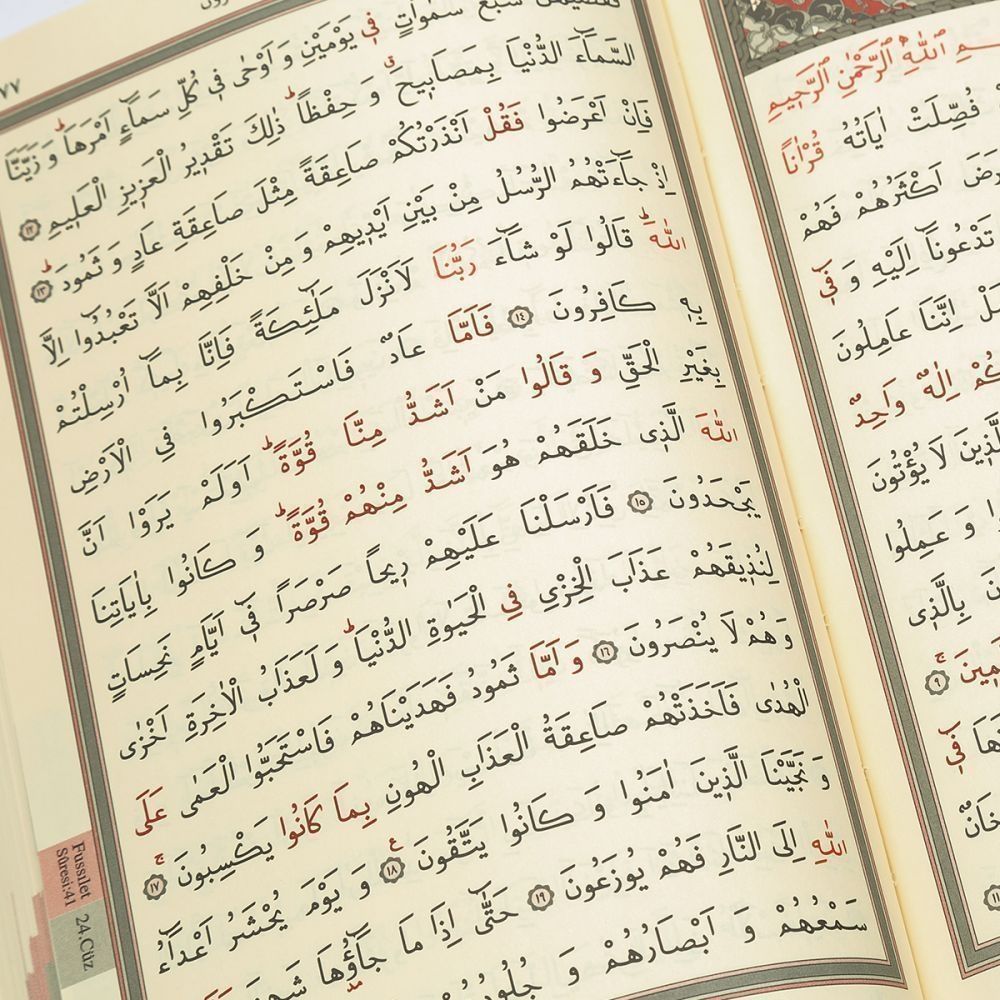 ـمِ اللّٰهِ الرَّحْمٰنِ الرَّحٖيمِ
فُصِّلَتْ اٰيَاتُهُ قُرْاٰناً
اَكْثَرُهُمْ فَهُمْ
تَدْعُونَٓا اِلَيْهِ وَ فٖٓي
اِنَّنَا عَامِلُونَ
اِلٰهٌ وَاحِدٌ
لَا يُؤْتُونَ
وَ عَمِلُوا
بِالَّذٖي
٩
فٖي
سَبْعَ سَمٰوَاتٍ فٖي يَوْمَيْنِ وَ اَوْحٰى فٖي كُلِّ سَمَٓاءٍ اَمْرَهَاؕ وَ زَيَّنَّا
السَّمَٓاءَ الدُّنْيَا بِمَصَابٖيحَۗ وَ حِفْظاًؕ ذٰلِكَ تَقْدٖيرُ الْعَزٖيزِ الْعَلٖيمِ ١٢
فَاِنْ اَعْرَضُوا فَقُلْ اَنْذَرْتُكُمْ صَاعِقَةً مِثْلَ صَاعِقَةِ عَادٍ وَ ثَمُودَؕ ١٣
اِذْ جَٓاءَتْهُمُ الرُّسُلُ مِنْ بَيْنِ اَيْدٖيهِمْ وَ مِنْ خَلْفِهِمْ اَلَّا تَعْبُدُٓوا اِلَّا
اللّٰهَؕ قَالُوا لَوْ شَٓاءَ رَبُّنَا لَاَنْزَلَ مَلٰٓئِكَةً فَاِنَّا بِمَٓا اُرْسِلْتُمْ
بِهٖ كَافِرُونَ ١٤ فَاَمَّا عَادٌ فَاسْتَكْبَرُوا فِي الْاَرْضِ
بِغَيْرِ الْحَقِّ وَ قَالُوا مَنْ اَشَدُّ مِنَّا قُوَّةًؕ اَوَلَمْ يَرَوْا اَنَّ
اللّٰهَ الَّذٖي خَلَقَهُمْ هُوَ اَشَدُّ مِنْهُمْ قُوَّةًؕ وَ كَانُوا بِاٰيَاتِنَا
يَجْحَدُونَ ١٥ فَاَرْسَلْنَا عَلَيْهِمْ رٖيحاً صَرْصَراً فٖٓي اَيَّامٍ نَحِسَاتٍ
لِنُذٖيقَهُمْ عَذَابَ الْخِزْيِ فِي الْحَيٰوةِ الدُّنْيَاؕ وَ لَعَذَابُ الْاٰخِرَةِ اَخْزٰى
وَهُمْ لَا يُنْصَرُونَ ١٦ وَ اَمَّا ثَمُودُ فَهَدَيْنَاهُمْ فَاسْتَحَبُّوا الْعَمٰى عَلَى
الْهُدٰى فَاَخَذَتْهُمْ صَاعِقَةُ الْعَذَابِ الْهُونِ بِمَا كَانُوا يَكْسِبُونَۚ ١٧
وَ نَجَّيْنَا الَّذٖينَ اٰمَنُوا وَ كَانُوا يَتَّقُونَ ١٨ وَ يَوْمَ يُحْشَرُ اَعْدَٓاءُ
اللّٰهِ اِلَى النَّارِ فَهُمْ يُوزَعُونَ ١٩ حَتّٰٓى اِذَا مَا جَٓاؤُ۫هَا
سَمْعُهُمْ وَ اَبْصَارُهُمْ وَ
Fussılet
Sûresi:41
24.Cüz